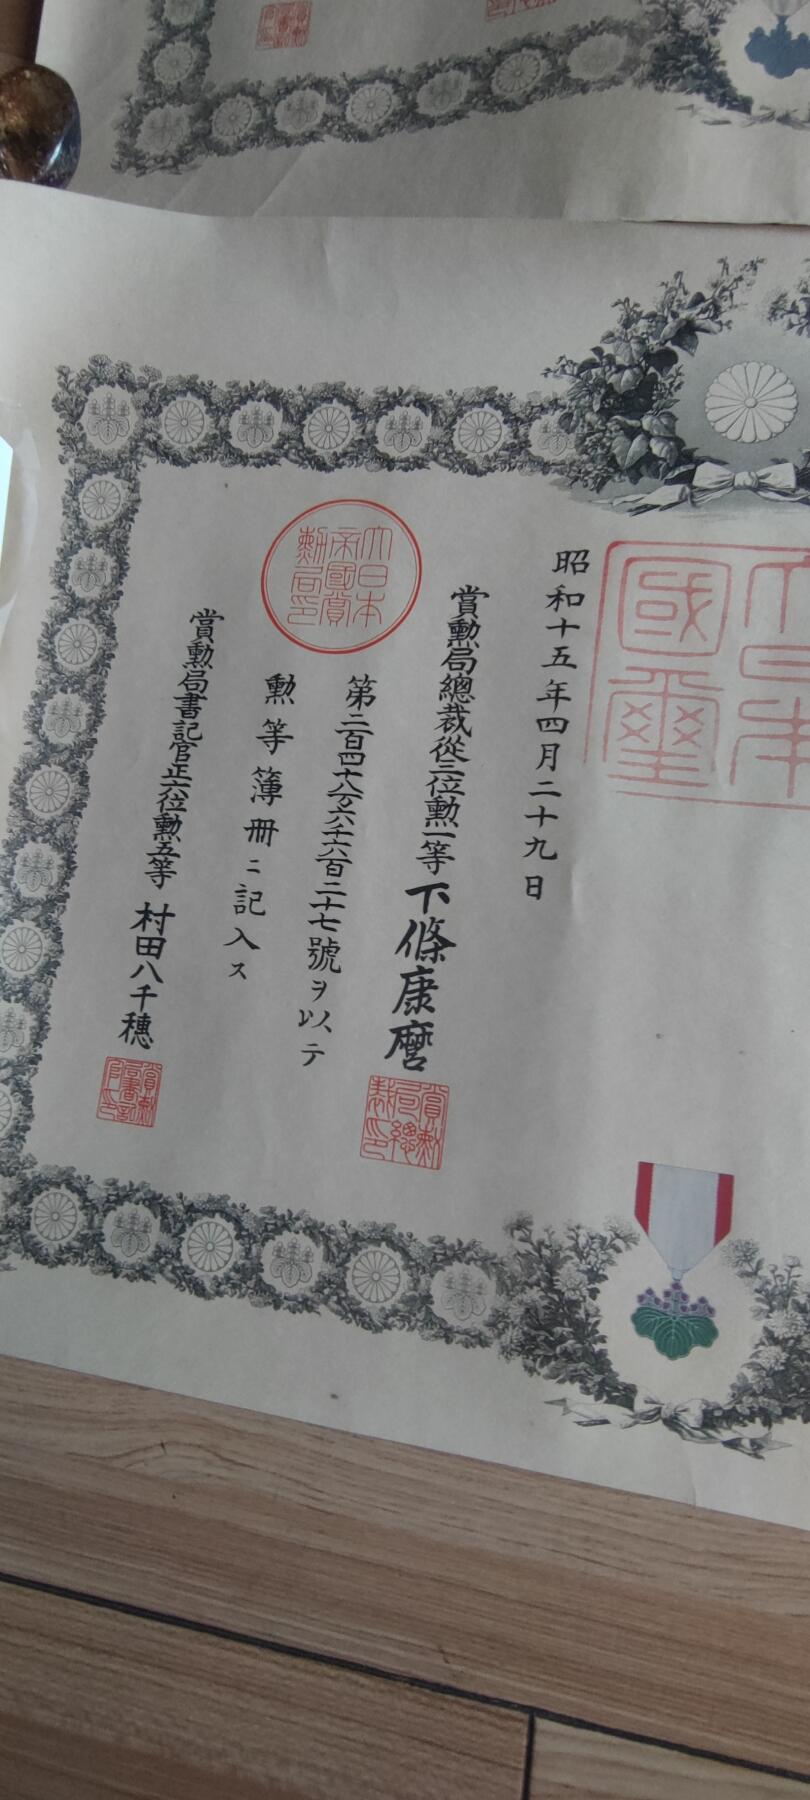 大日本國璽
昭和十五年四月二十九日
賞勲局總裁從三位勲一等下條康麿
賞勲局總裁印
大日本帝國賞勲局印
第二百四十八万六千六百二十七號ヲ以テ
勲等簿冊ニ記入ス
賞勲局書記官正六位勲五等村田八千穗
賞勲局書記官印